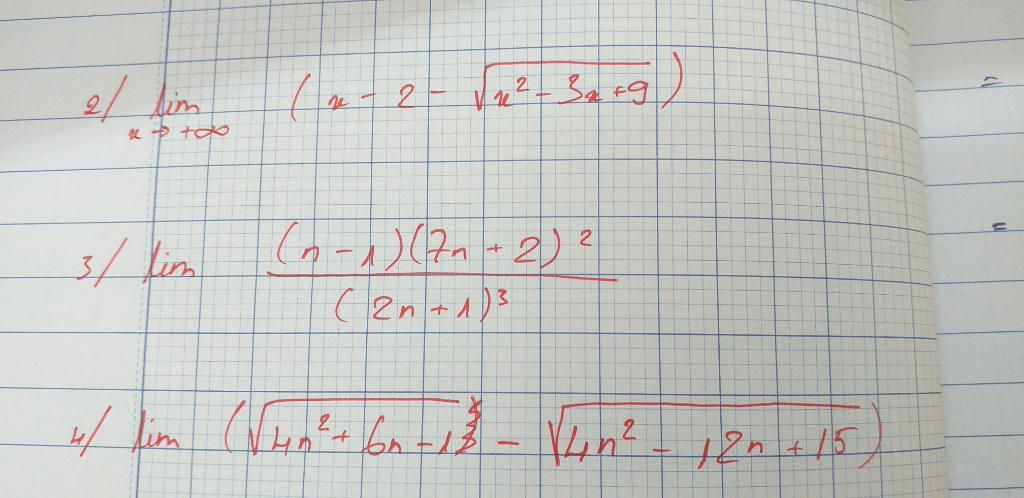 2/ lim x→+∞ (x - 2 - √(x² - 3x + 9))
=
3/ lim (n - 1)(7n + 2)² / (2n + 1)³
=
4/ lim (√(4n² + 6n - 1 ) - √(4n² - 12n + 15))